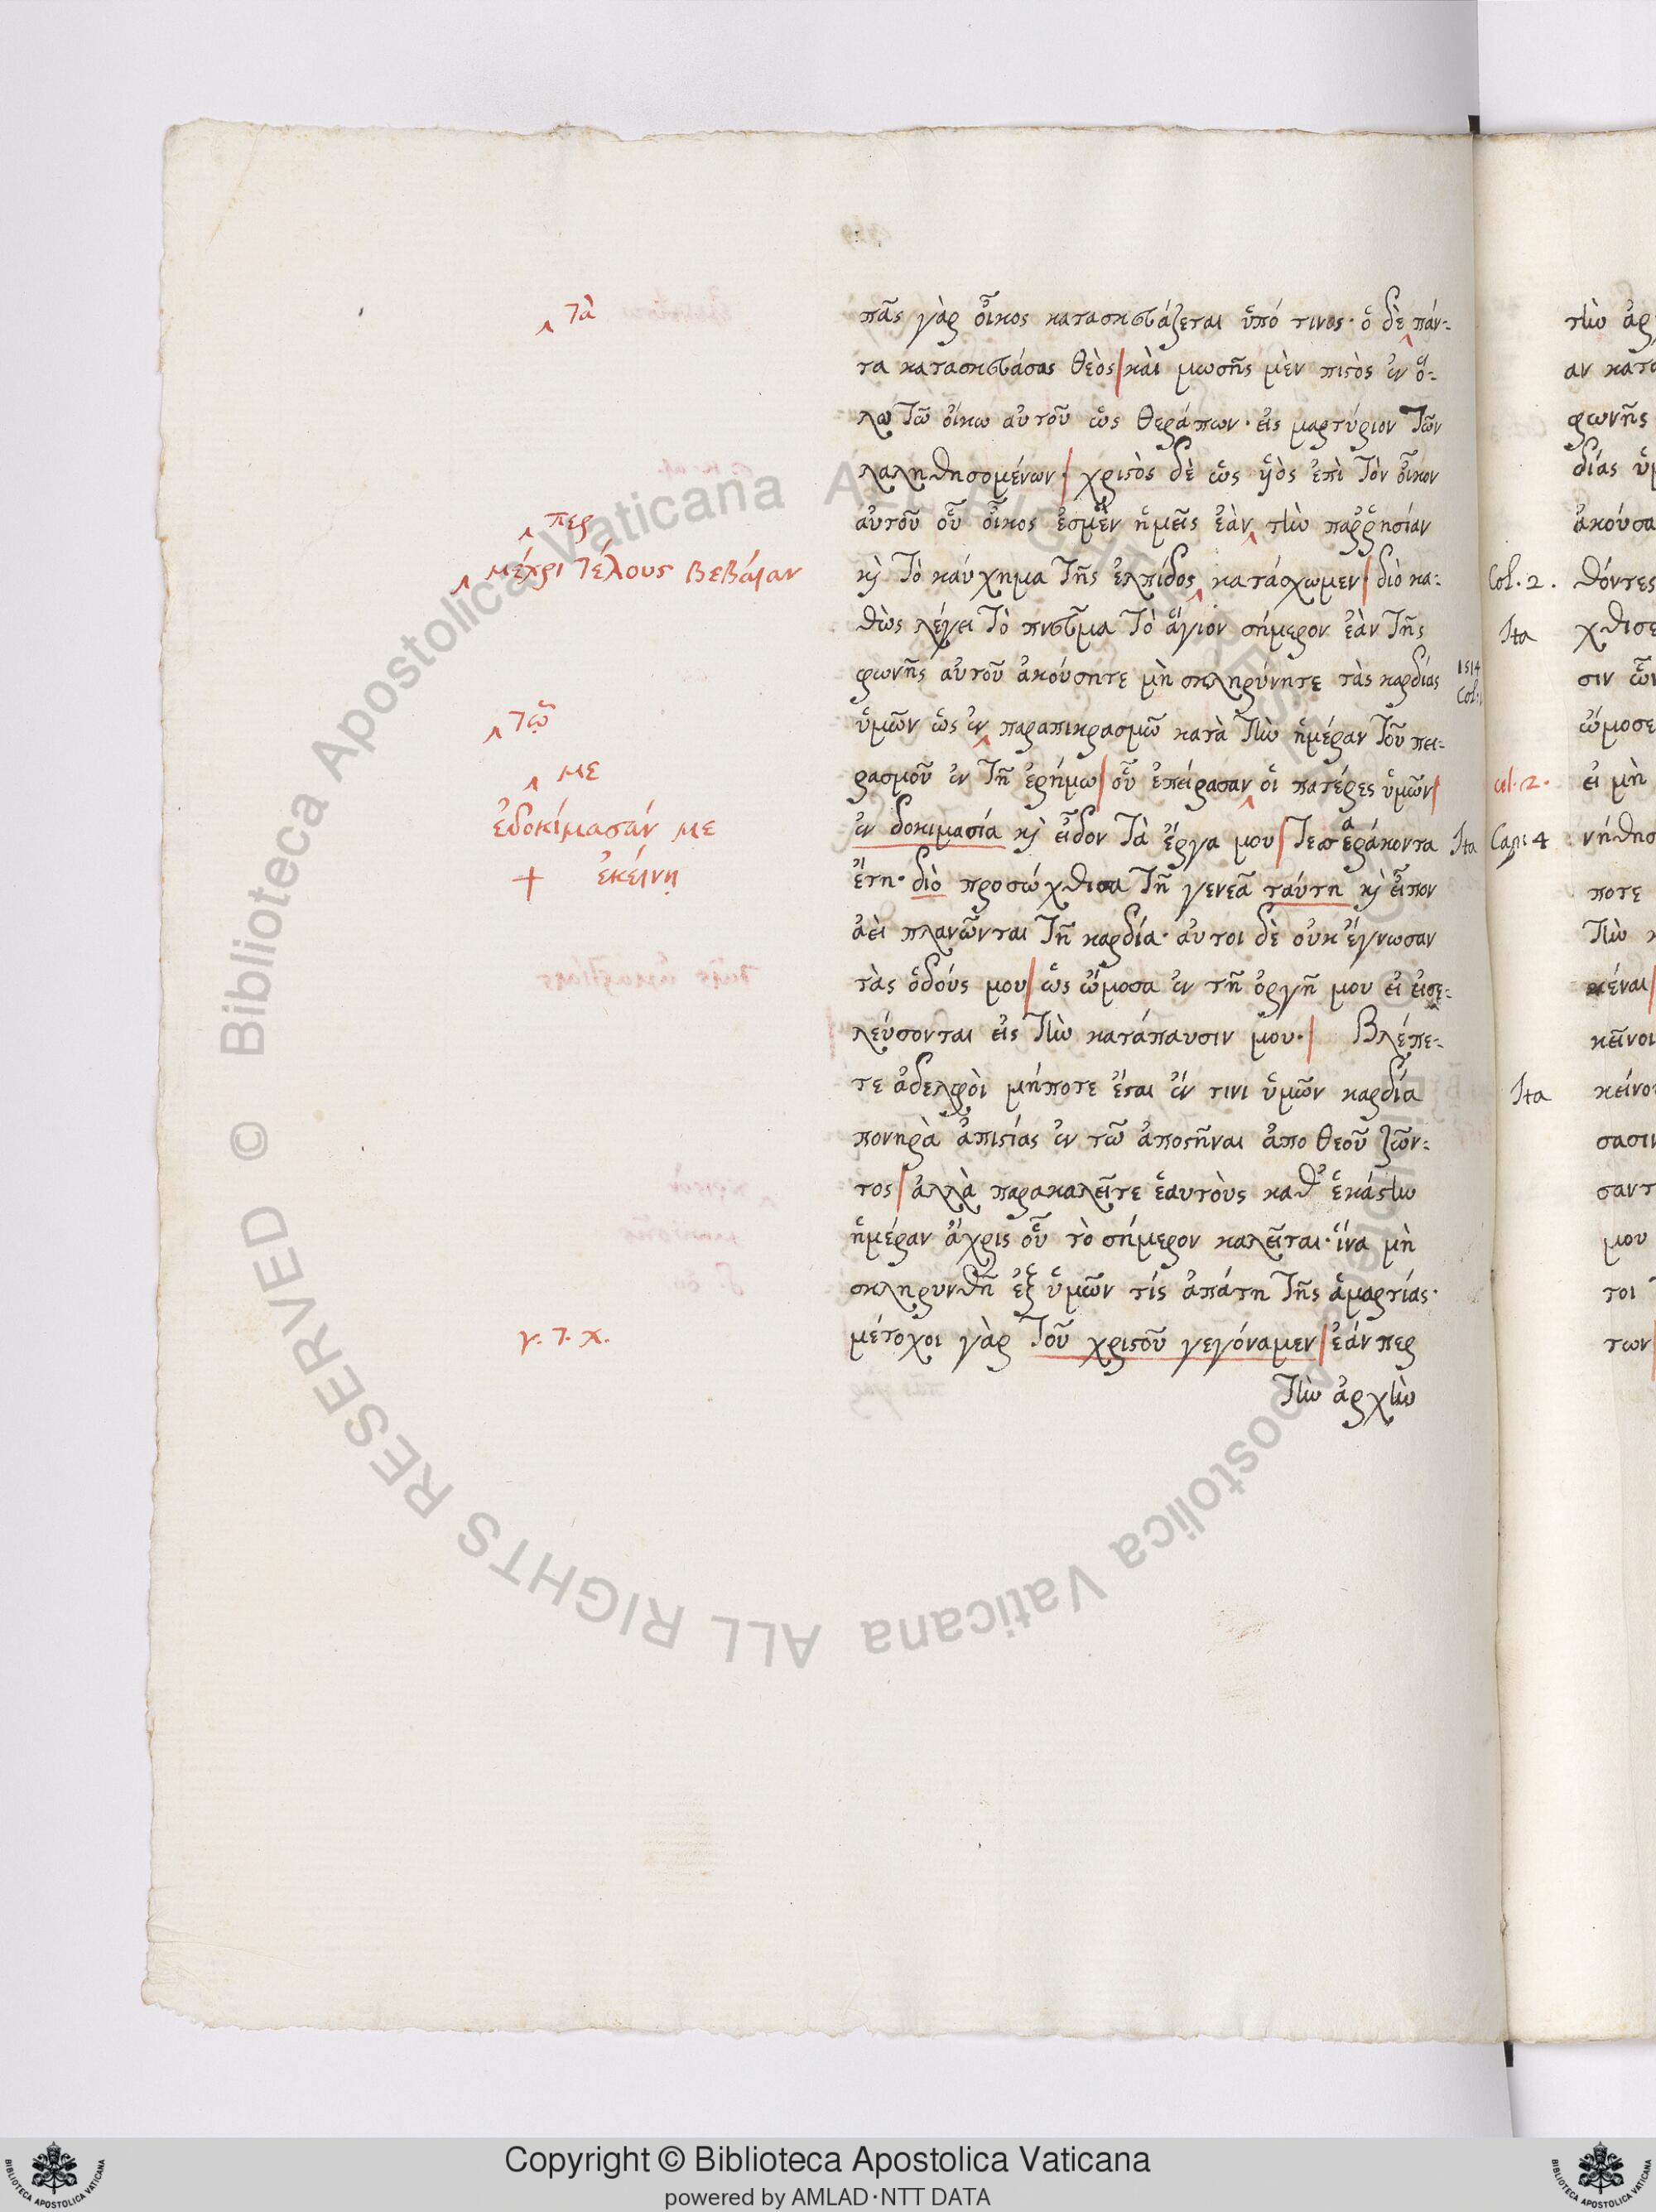 πᾶς γὰρ οἶκος κατασκευάζεται ὑπό τινος· ὁ δὲ πάν-
τα κατασκευάσας θεὸς καὶ μωσῆς μὲν πιστὸς ἐν ὅ-
λω τῶ οἴκω αὐτοῦ ὡς θεράπων· εἰς μαρτύριον τῶν
λαληθησομένων· χριστὸς δὲ ὡς υἱὸς ἐπὶ τὸν οἶκον
αὐτοῦ οὗ οἶκος ἐσμὲν ἡμεῖς ἐὰν τὴν παῤῥησίαν
κὶ τὸ καύχημα τῆς ἐλπίδος κατάσχωμεν· διὸ κα-
θὼς λέγει τὸ πνεῦμα τὸ ἅγιον σήμερον ἐὰν τῆς
φωνῆς αὐτοῦ ἀκούσητε μὴ σκληρύνητε τὰς καρδίας
ὑμῶν ὡς ἐν παραπικρασμῶ κατὰ τὴν ἡμέραν τοῦ πει-
ρασμοῦ ἐν τῆ ἐρήμω οὗ ἐπείρασαν οἱ πατέρες ὑμῶν
ἐν δοκιμασία κὶ εἶδον τὰ ἔργα μου τεσσεράκοντα
ἔτη· διὸ προσώχθισα τῆ γενεᾶ ταύτη κὶ εἶπον
ἀεὶ πλανῶνται τῆ καρδία· αὐτοι δὲ οὐκ ἔγνωσαν
τὰς ὁδούς μου ὡς ὤμοσα ἐν τῆ ὀργῆ μου εἰ εἰσε-
λεύσονται εἰς τὴν κατάπαυσιν μου· Βλέπε-
τε ἀδελφὸι μήποτε ἔσται ἔν τινι ὑμῶν καρδία
πονηρὰ ἀπιστίας ἐν τῶ ἀποστῆναι ἀπο θεοῦ ζῶν-
τος ἀλλὰ παρακαλεῖτε ἑαυτοὺς καθ' ἑκάστην
ἡμέραν ἄχρις οὗ τὸ σήμερον καλεῖται· ἵνα μὴ
σκληρυνθῆ ἐξ ὑμῶν τίς ἀπάτη τῆς ἁμαρτίας·
μέτοχοι γὰρ τοῦ χριστοῦ γεγόναμεν ἐάν περ
τὴν ἀρχὴν
^ τὰ
^ περ
^ μέχρι τέλους βεβάιαν
^ τῷ
^ με
ἐδοκίμασάν με
+ ἐκείνῃ
γ. τ. χ.
1514
Col. 1
Ita
Col. 2.
Ita
col. 2.
Cap. 4
Ita
τὴν ἀρ
αν κατα
φωνῆς
δίας ὑμ
ἀκούσα
θόντες
χθισε
σιν ὧν
ὤμοσε
εἰ μὴ
νήθησ
ποτε
τὴν κ
κέναι
κεῖνοι
κείνου
σασιν
σαντ
μου
τοι
των
© Biblioteca Apostolica Vaticana ALL RIGHTS RESERVED
Copyright © Biblioteca Apostolica Vaticana
powered by AMLAD・NTT DATA
BIBLIOTECA APOSTOLICA VATICANA
BIBLIOTECA APOSTOLICA VATICANA